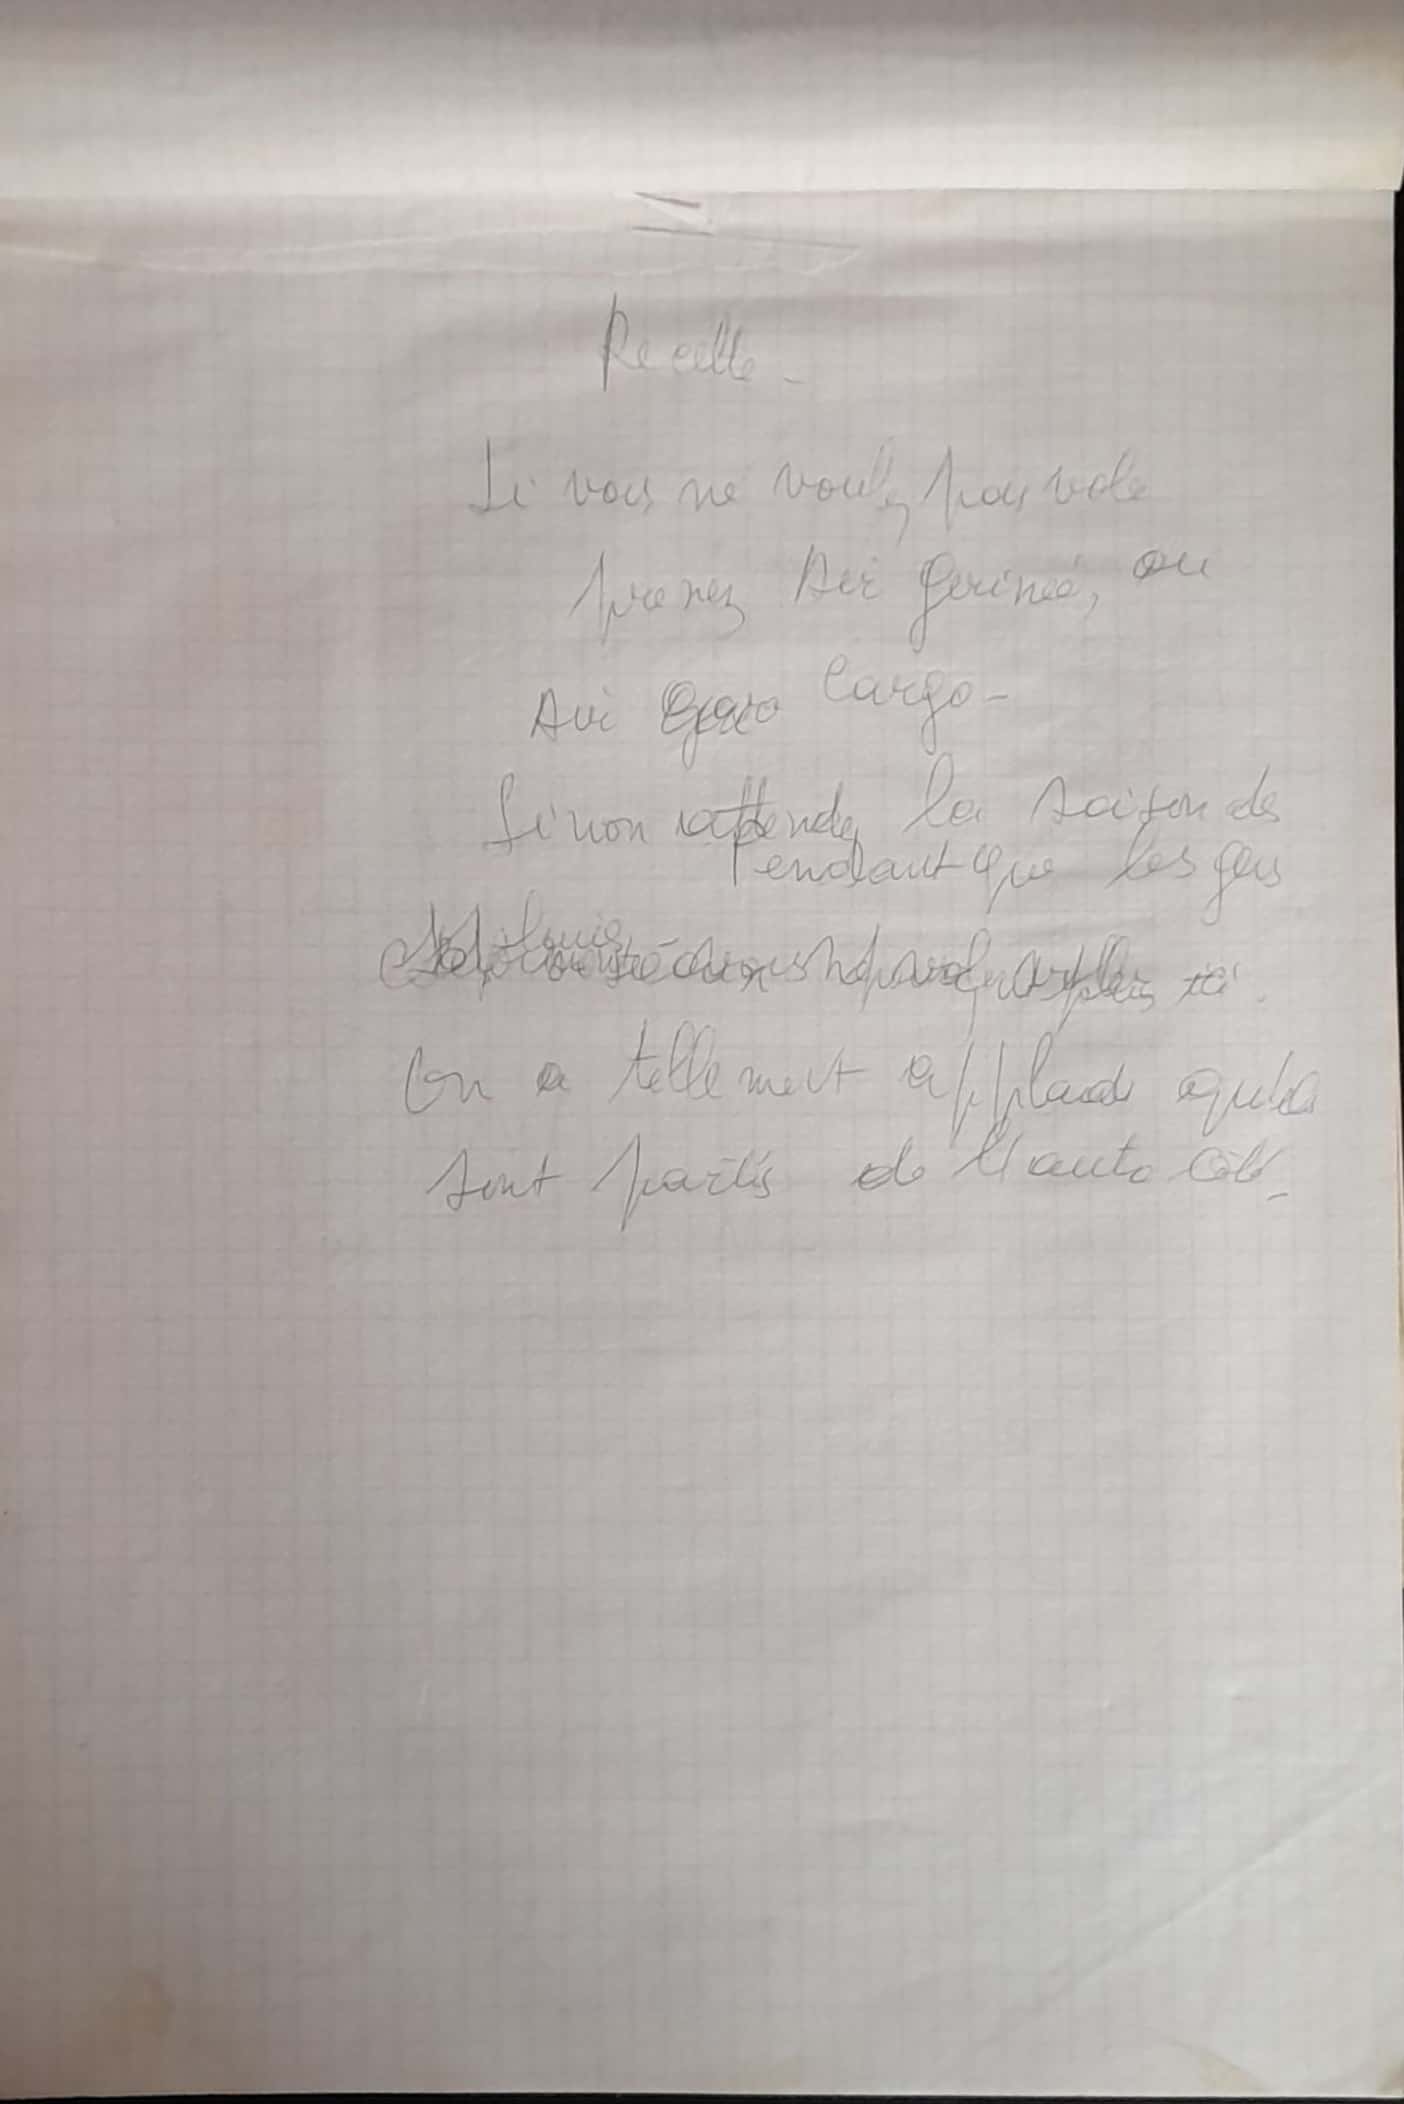 Recette -
Si vous ne voulez pas vole
prenez Air Guinée, ou
Air Cargo -
Sinon attendez la saison des
Pendant que les gens
plus ici.
On a tellement applaudi qu'ils
sont partis de l'autre côté -